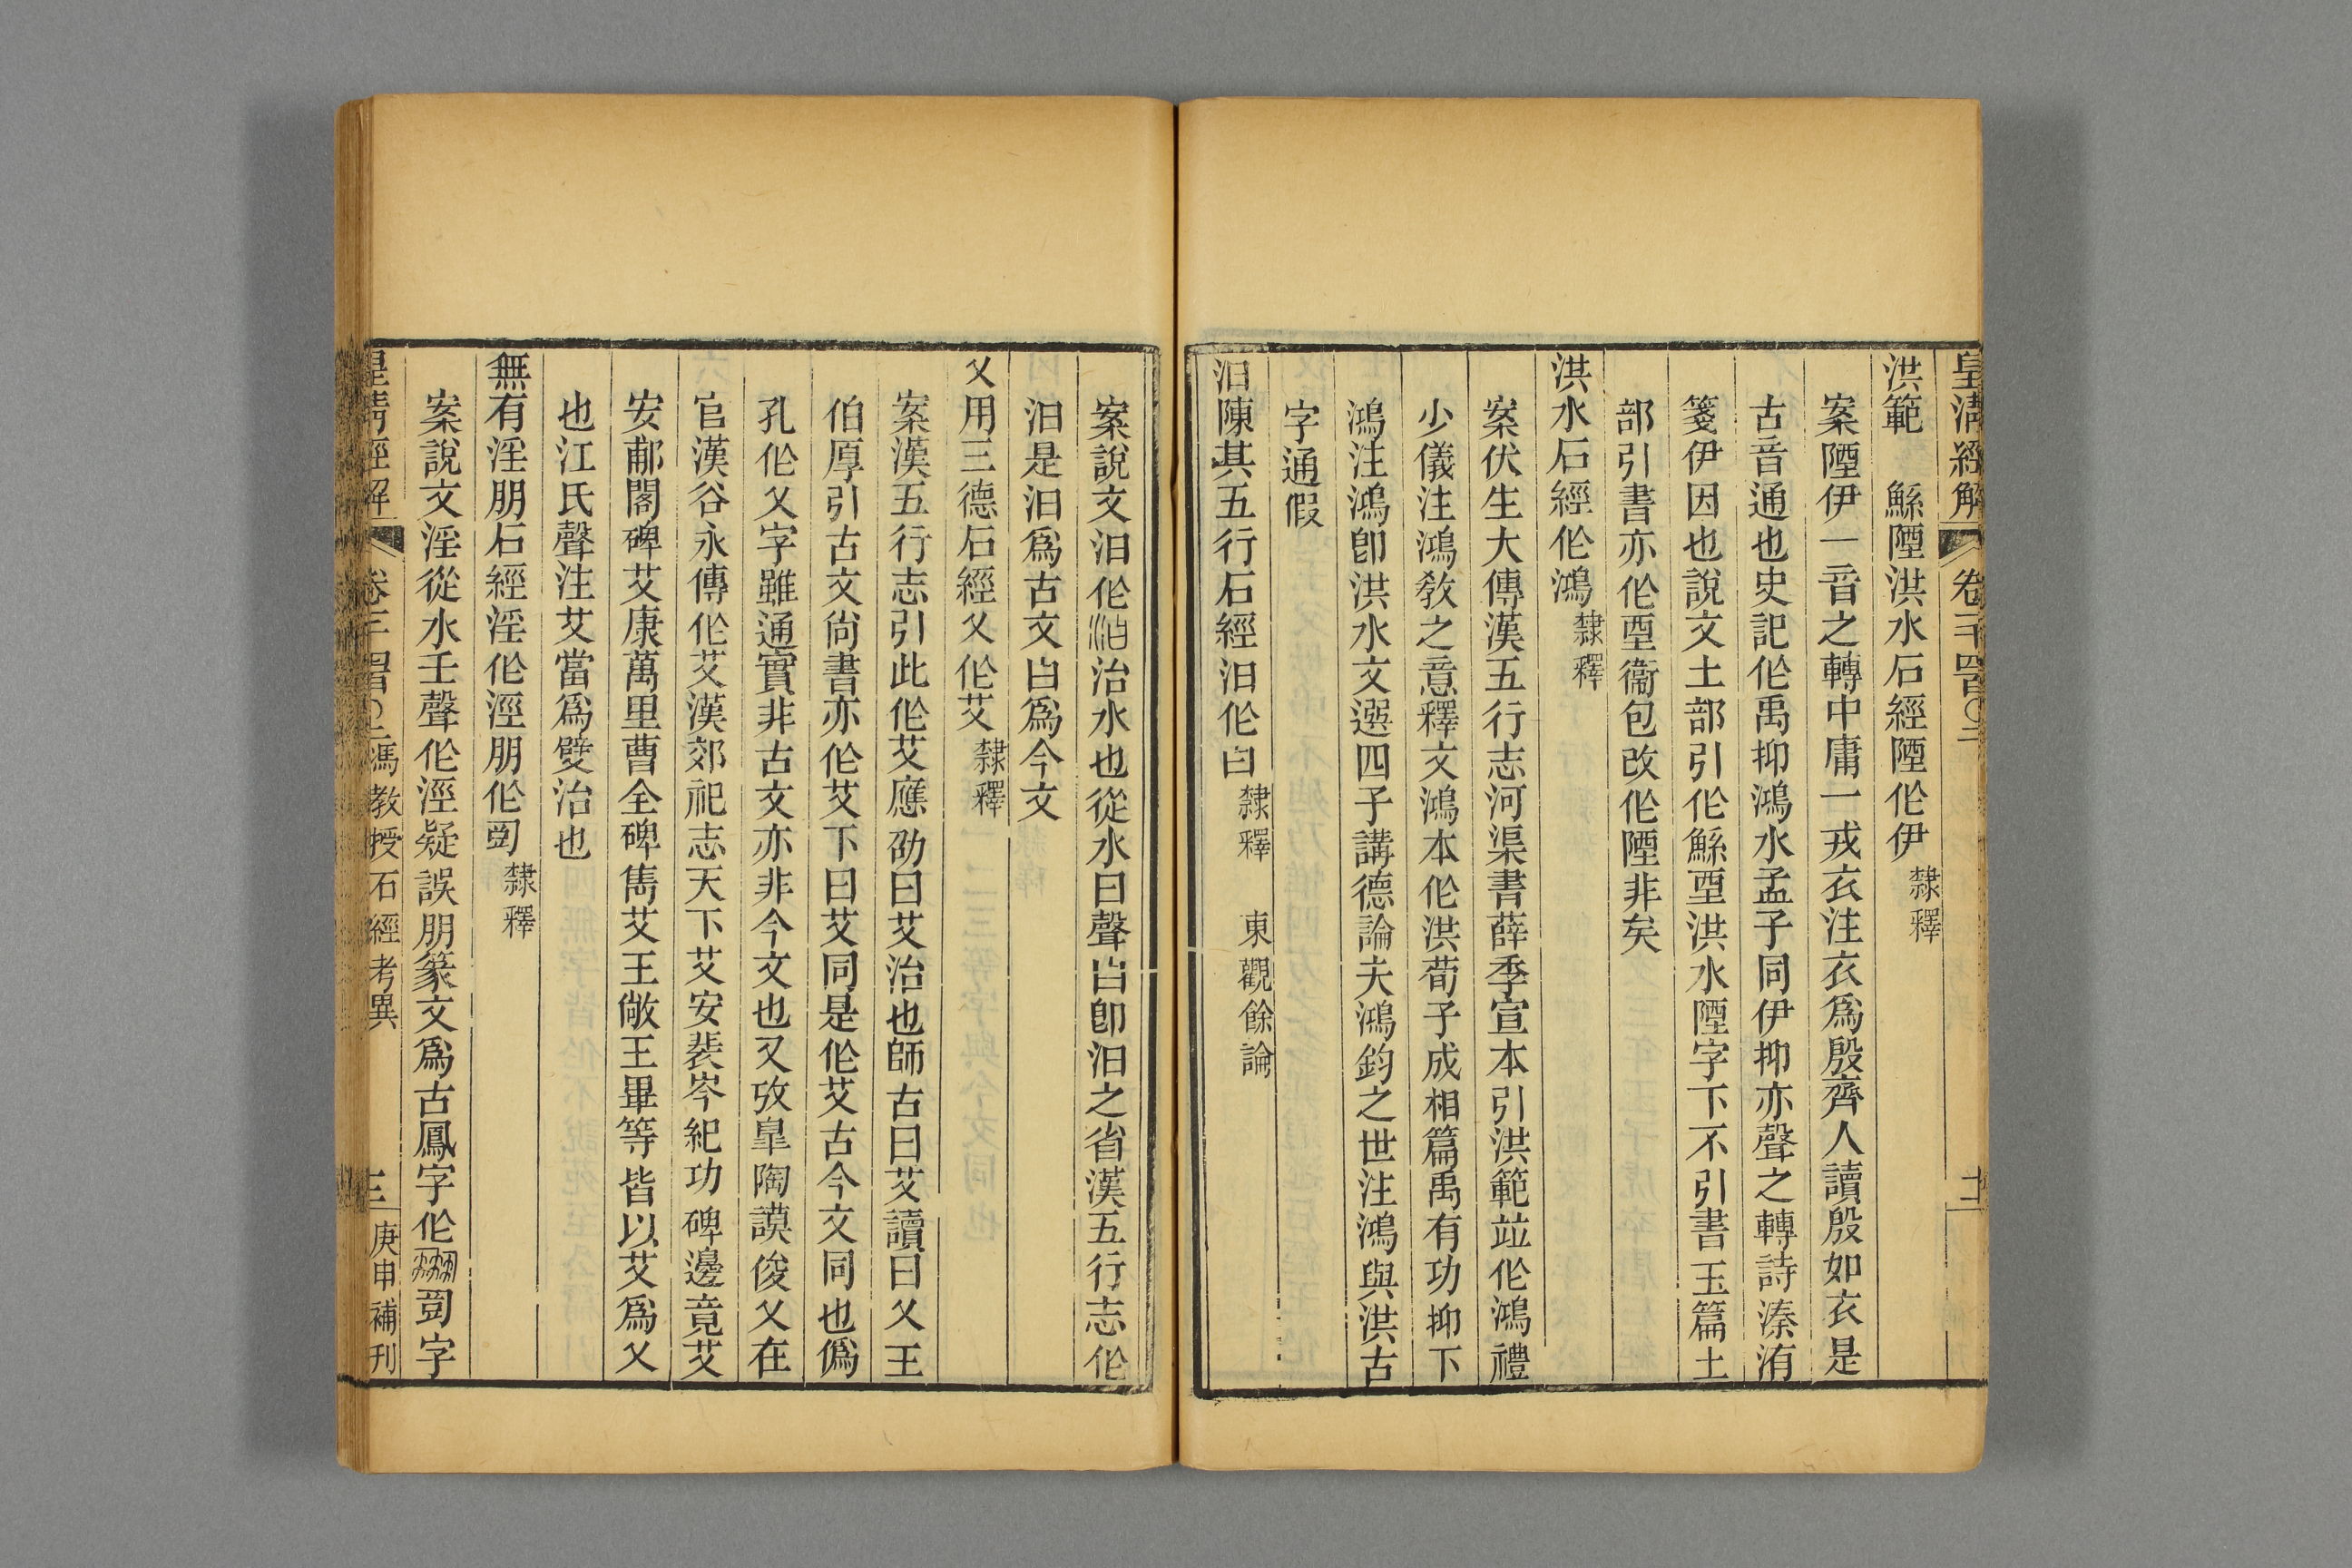 皇清經解
卷一千四百〇二
洪範　鯀陻洪水石經陻作伊隸釋
案陻伊一音之轉中庸一戎衣注衣爲殷齊人讀殷如衣是
古音通也史記作禹抑鴻水孟子同伊抑亦聲之轉詩溱洧
箋伊因也說文土部引作鯀垔洪水陻字下不引書玉篇土
部引書亦作垔衞包改作陻非矣
洪水石經作鴻隸釋
案伏生大傳漢五行志河渠書薛季宣本引洪範竝作鴻禮
少儀注鴻敎之意釋文鴻本作洪荀子成相篇禹有功抑下
鴻注鴻卽洪水文選四子講德論夫鴻鈞之世注鴻與洪古
字通假
汩陳其五行石經汩作曰隸釋　東觀餘論
案說文汩作治水也從水曰聲卽汩之省漢五行志作
汩是汩爲古文曰爲今文
乂用三德石經乂作艾隸釋
案漢五行志引此作艾應劭曰艾治也師古曰艾讀曰乂王
伯厚引古文尙書亦作艾下曰艾同是作艾古今文同也僞
孔作乂字雖通實非古文亦非今文也又攷皐陶謨俊乂在
官漢谷永傳作艾漢郊祀志天下艾安裴岑紀功碑邊竟艾
安郙閣碑艾康萬里曹全碑雋艾王敞王畢等皆以艾爲乂
也江氏聲注艾當爲嬖治也
無有淫朋石經淫作涇朋作𠚏隸釋
案說文淫從水𡈼聲作涇疑誤朋篆文爲古鳳字作𠚏字
皇清經解
卷一千四百〇二馮教授石經考異
三
庚申補刊